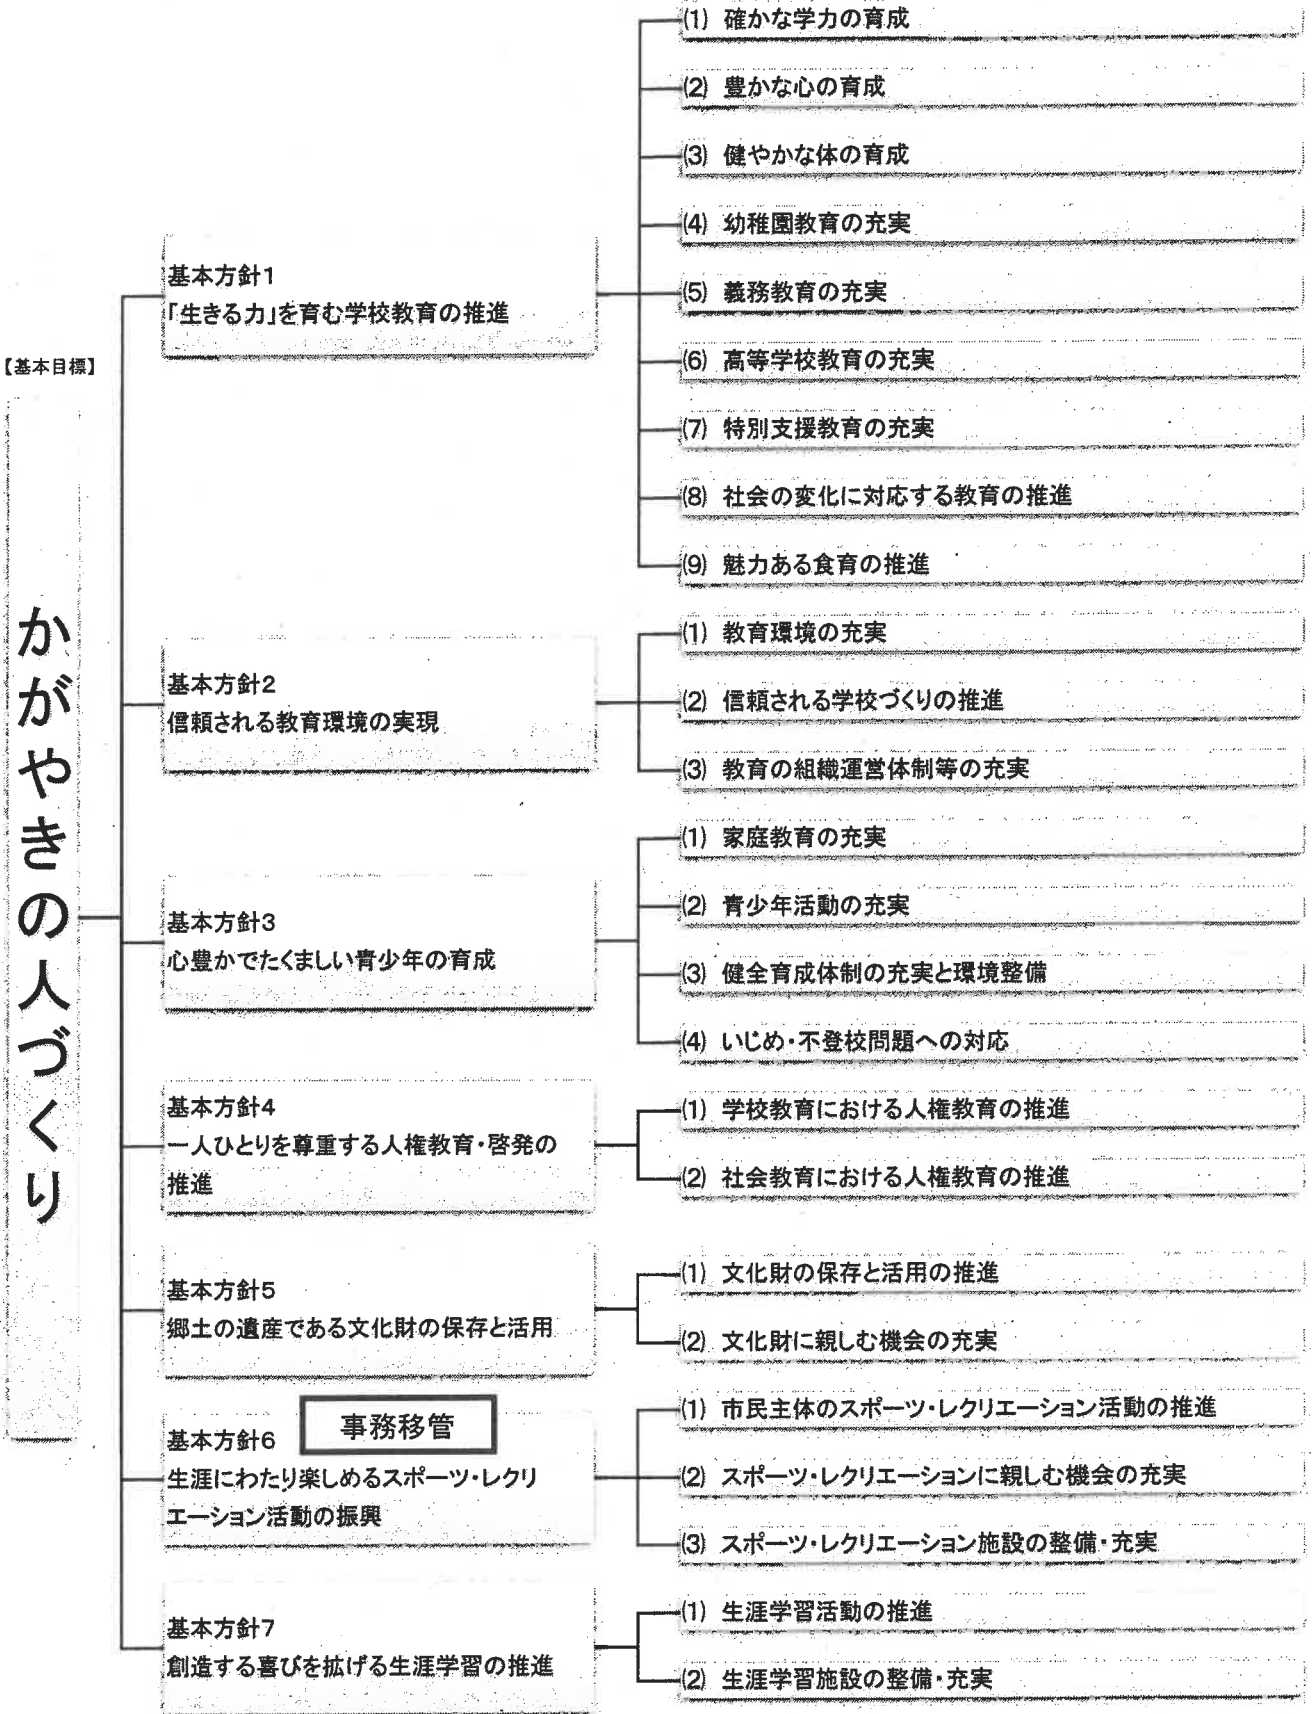 【基本目標】
かがやきの人づくり
基本方針1
「生きる力」を育む学校教育の推進
(1) 確かな学力の育成
(2) 豊かな心の育成
(3) 健やかな体の育成
(4) 幼稚園教育の充実
(5) 義務教育の充実
(6) 高等学校教育の充実
(7) 特別支援教育の充実
(8) 社会の変化に対応する教育の推進
(9) 魅力ある食育の推進
基本方針2
信頼される教育環境の実現
(1) 教育環境の充実
(2) 信頼される学校づくりの推進
(3) 教育の組織運営体制等の充実
基本方針3
心豊かでたくましい青少年の育成
(1) 家庭教育の充実
(2) 青少年活動の充実
(3) 健全育成体制の充実と環境整備
(4) いじめ・不登校問題への対応
基本方針4
一人ひとりを尊重する人権教育・啓発の
推進
(1) 学校教育における人権教育の推進
(2) 社会教育における人権教育の推進
基本方針5
郷土の遺産である文化財の保存と活用
(1) 文化財の保存と活用の推進
(2) 文化財に親しむ機会の充実
事務移管
基本方針6
生涯にわたり楽しめるスポーツ・レクリ
エーション活動の振興
(1) 市民主体のスポーツ・レクリエーション活動の推進
(2) スポーツ・レクリエーションに親しむ機会の充実
(3) スポーツ・レクリエーション施設の整備・充実
基本方針7
創造する喜びを拡げる生涯学習の推進
(1) 生涯学習活動の推進
(2) 生涯学習施設の整備・充実